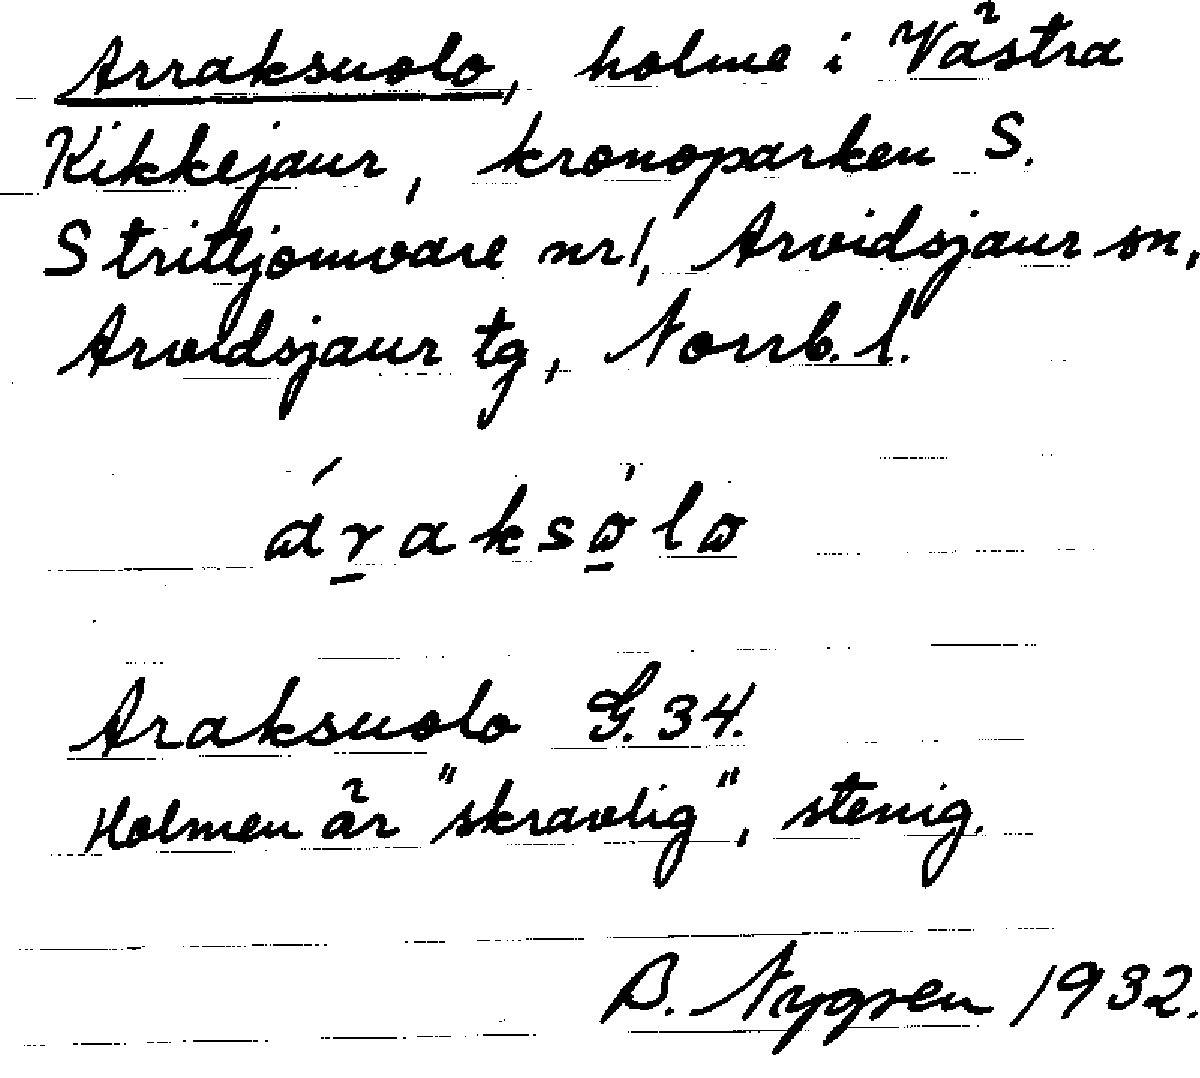 Arraksuolo, holme i Västra
Kikkejaur, kronoparken S.
Stritljomvare nr 1, Arvidsjaur sn,
Arvidsjaur tg, Norrb. l.
áraksòlo
Araksuolo G. 34.
Holmen är "skravlig", stenig.
B. Nygren 1932.